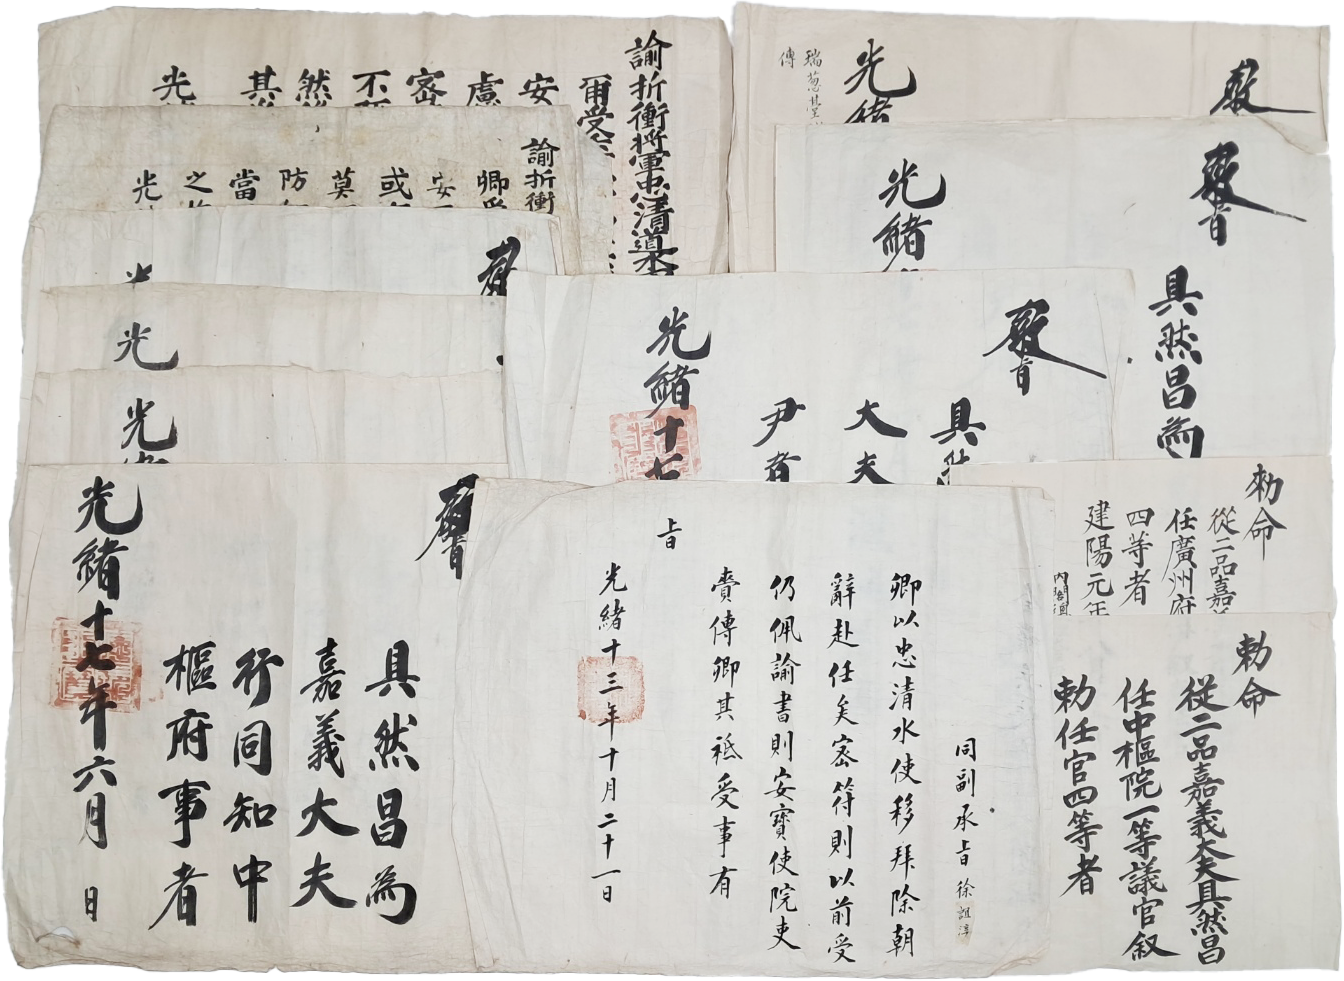 諭折衝將軍忠清道水
爾受
安
慮
密
不
然
其
光
諭折衝
卿受
安
或
莫
防
當
之
光
光
光
光緒
敎旨
具然昌爲
嘉義大夫
行同知中
樞府事者
光緒十七年六月 日
敎
光緒
瑞葱䑓
傳
敎旨
具然昌爲
光緒
敎旨
具然
大夫
尹者
光緒十七
同副承旨徐祖淳
卿以忠清水使移拜除朝
辭赴任矣密符則以前受
仍佩諭書則安寶使院吏
賫傳卿其祗受事有
旨
光緒十三年十月二十一日
勅命
從二品嘉義
任廣州府
四等者
建陽元年
內閣
勅命
從二品嘉義大夫具然昌
任中樞院一等議官叙
勅任官四等者